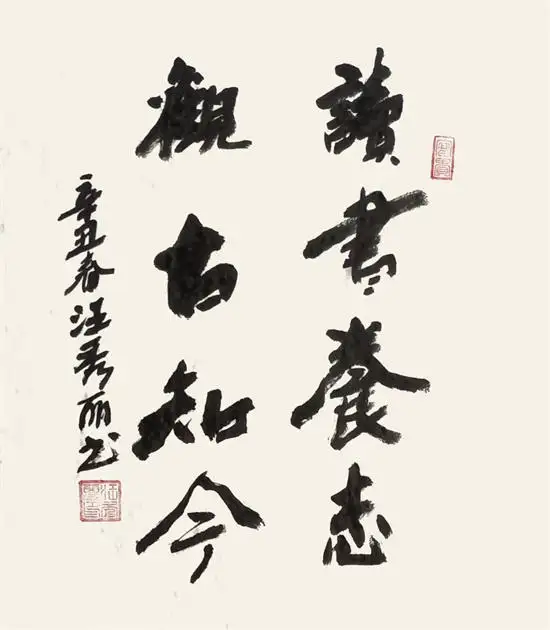 讀書養志
觀古知今
辛丑春汪秀丽书